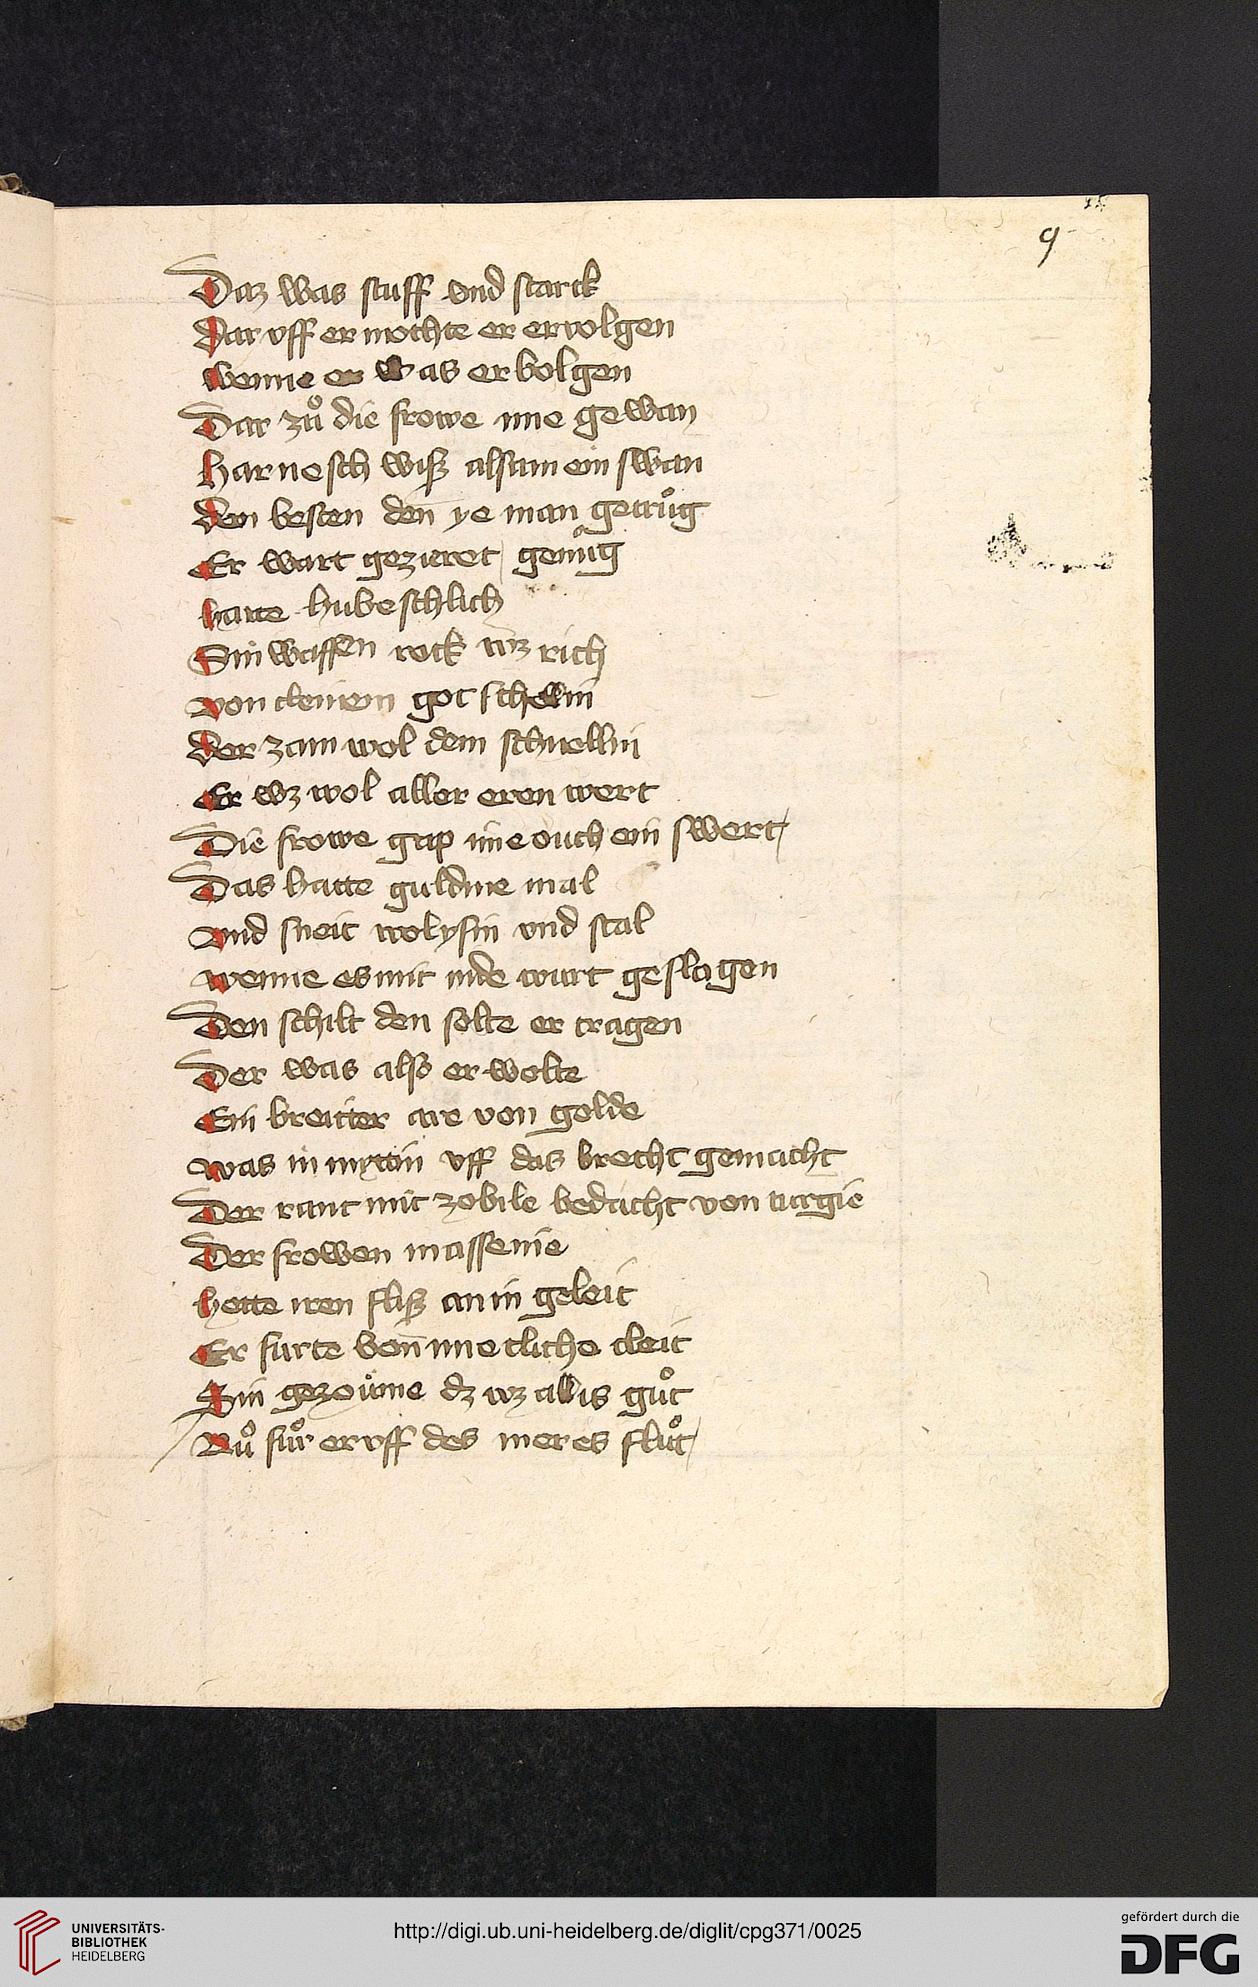 9
Daz was starff vnd starck
Dar vff er mochte er ervolgen
wenne er was erbolgen
Dar zuͦ die frowe ime gewan
Harnesch wiß alsam ein swan
den besten den̄ ye man getruͦg
Er wart gezieret genuͦg
harte hubeschlich
Sin waffen rock wz rich
von cleinem gotschellin
der zam wol dem schnellin
Er wz wol aller eren wert
Die frowe gap ime ouch ein swert
Das hatte guldine mal
vnd sneit wol ysin vnd stal
wenne es mit nide wart geslagen
Den schilt den solte er tragen
Der was also er wolte
Ein breitter are von golde
was in mytttin vff das brecht gemacht
Der rant mit zobile bedacht von turgie
Der frowen massenie
hette iren fliß an in geleit
Er furte ven̄ ime cliche cleit
Sin gezoume dz wz allis guͦt
Nuͦ fuͦr er vff des meres fluͦt
UNIVERSITÄTS-
BIBLIOTHEK
HEIDELBERG
http://digi.ub.uni-heidelberg.de/diglit/cpg371/0025
gefördert durch die
DFG